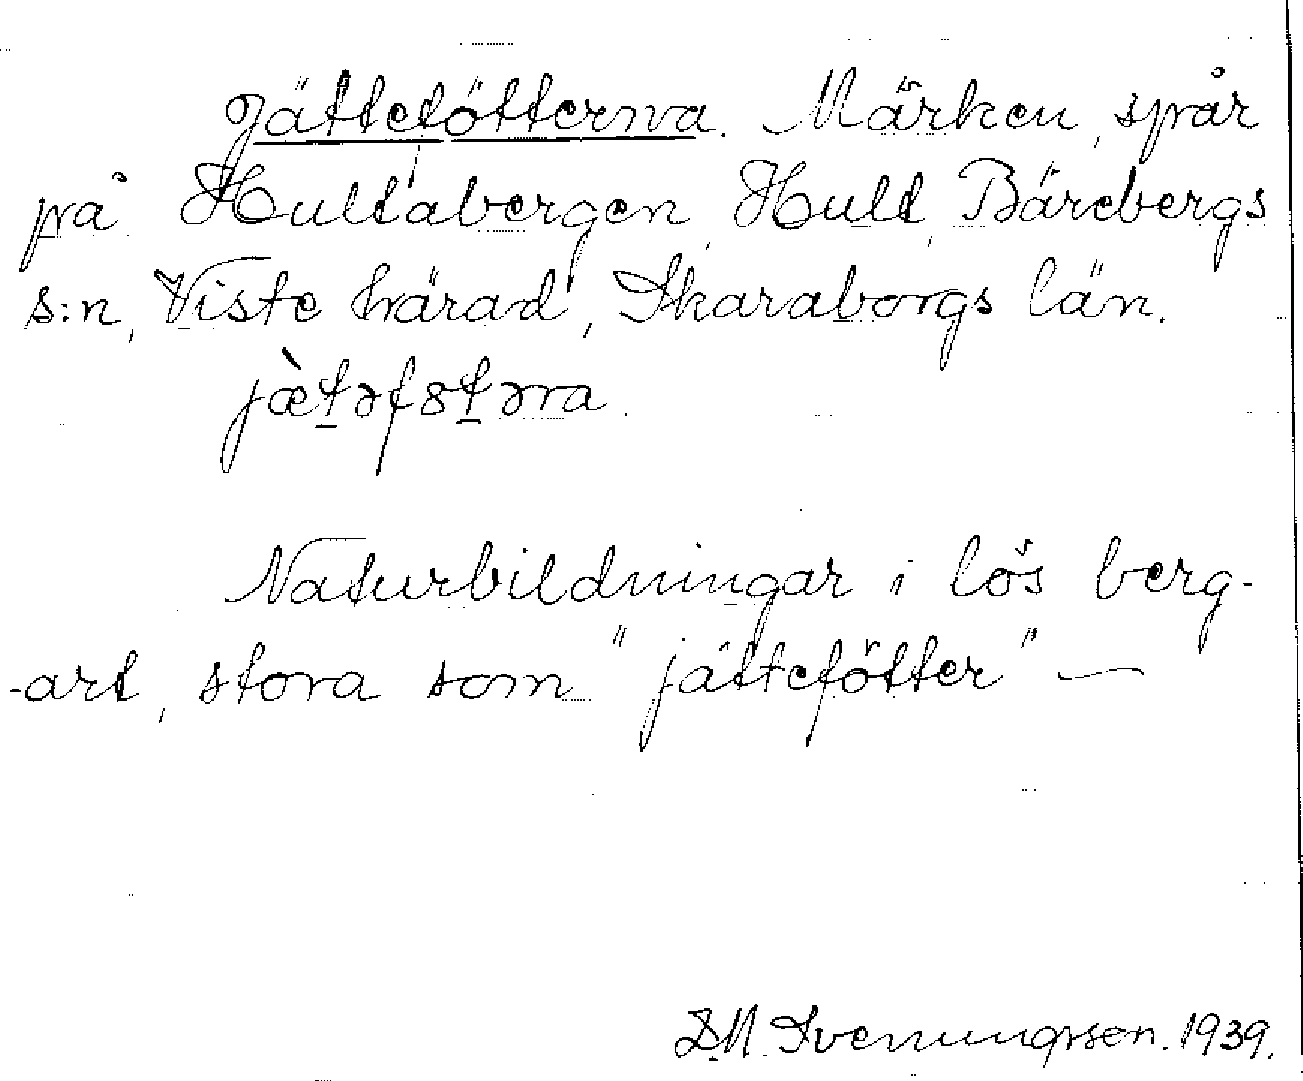 Jättefötterna. Märken, spår
på Hultabergen, Hult, Bärebergs
s:n, Viste härad, Skaraborgs län.
jæ̀t̠əfst̠əra.
Naturbildningar i lös berg-
-art, stora som "jättefötter" —
D.N. Svenungsson. 1939.